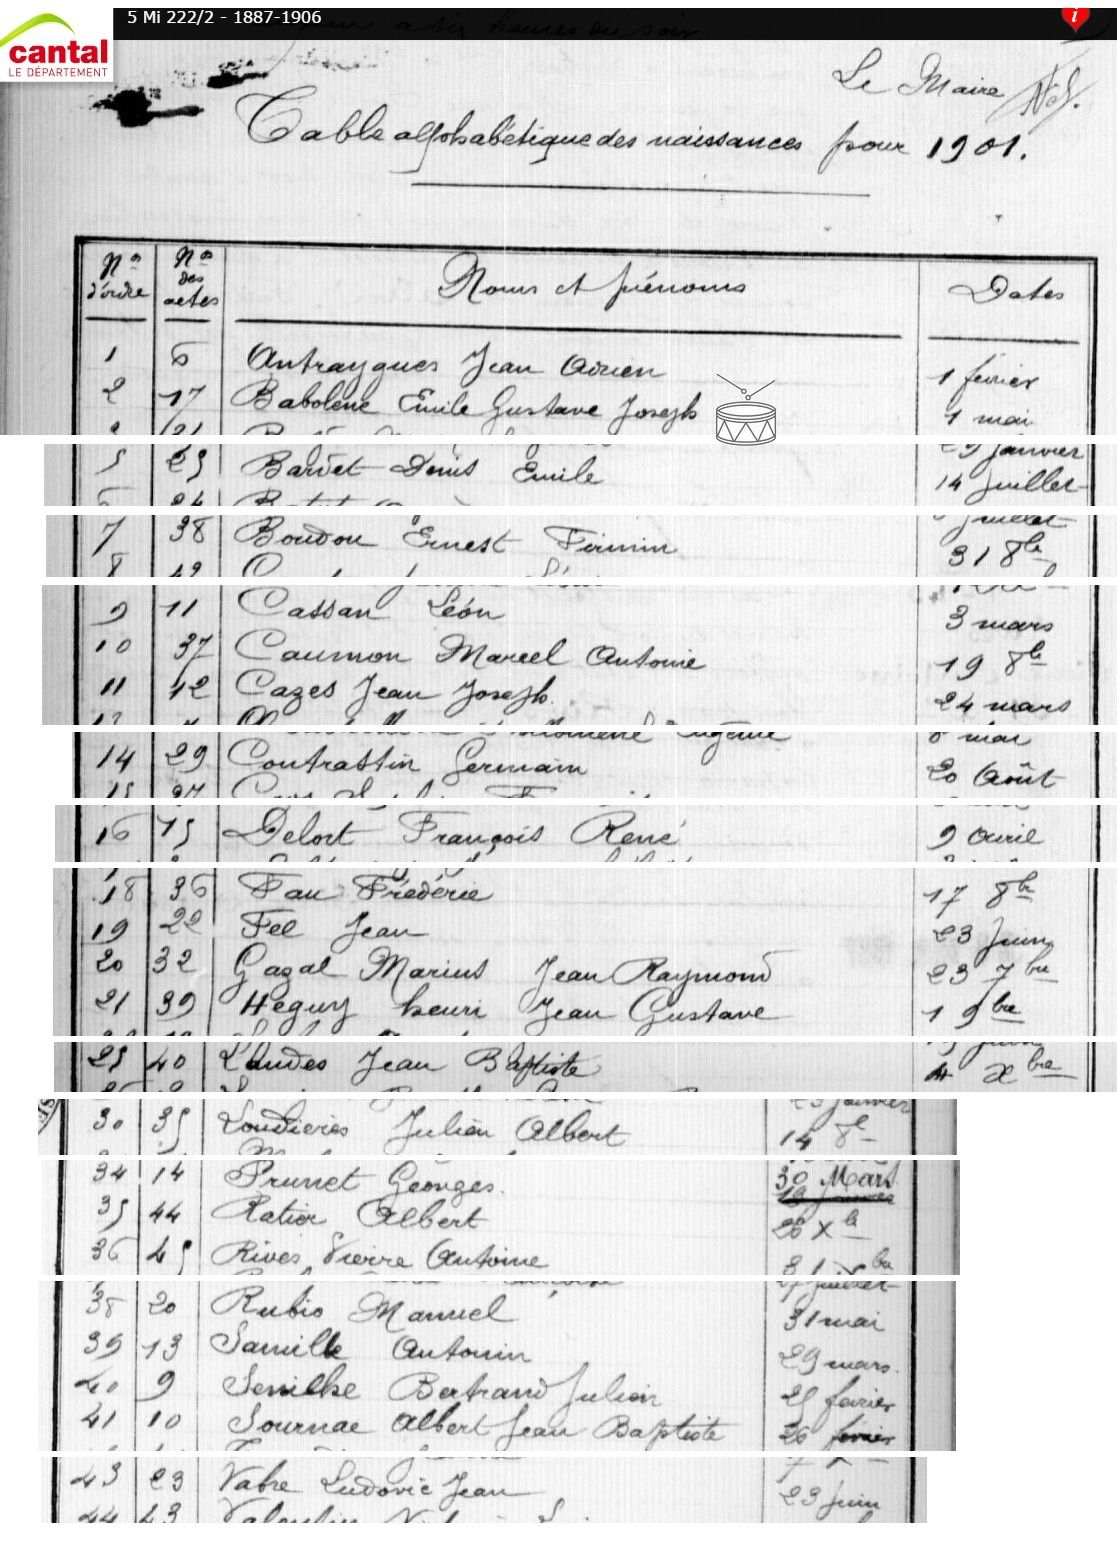 5 Mi 222/2 - 1887-1906
cantal
LE DÉPARTEMENT
i
à six heures du soir
Le Maire
Table alphabétique des naissances pour 1901.
Nos d'ordre Nos des actes Noms et prénoms Dates
1 6 Antraygues Jean Adrien 1 février
2 17 Babolene Emile Gustave Joseph 1 mai
29 janvier
5 25 Bardet Denis Emile 14 juillet
juillet
7 38 Boudou Ernest Firmin 31 8bre
9 11 Cassan Léon 3 mars
10 37 Caumon Marcel Antonie 19 8bre
11 12 Cazes Jean Joseph 24 mars
8 mai
14 29 Contrastin Germain 20 Août
16 15 Delort François René 9 Avril
18 36 Fau Frédéric 17 8bre
19 22 Fel Jean 23 Juin
20 32 Gazal Marius Jean Raymond 23 7bre
21 39 Heguy henri Jean Gustave 1 9bre
25 40 Landes Jean Baptiste 4 Xbre
23 janvier
30 35 Loudières Julien Albert 14 8bre
34 14 Prunet Georges 30 Mars
35 44 Ratier Albert 26 Xbre
36 45 Rives Pierre Antoine 31 Xbre
juillet
38 20 Rubio Manuel 31 mai
39 13 Samille Antonin 29 mars
40 9 Senilhe Bertrand Julien 25 février
41 10 Sournac Albert Jean Baptiste 26 février
43 23 Vabre Ludovic Jean 23 Juin
44 43 Valentin